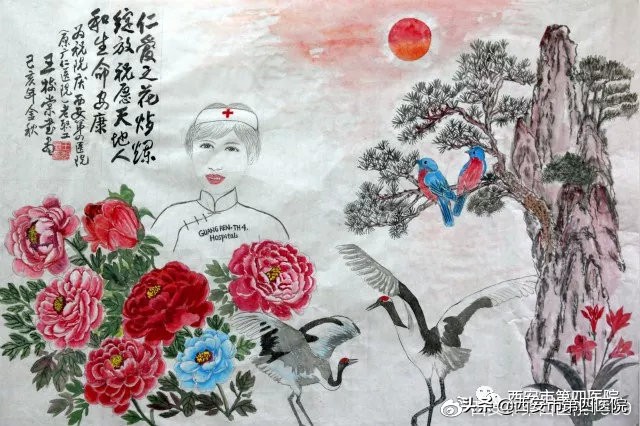 仁爱之花灿
绽放祝愿天地人
和生命安康
为祝院庆西安第四医院
(原广仁医院)老职工
王
己亥年金秋
GUANG REN-TH4.
Hospitals
西安市第四医院
头条 @西安市第四医院